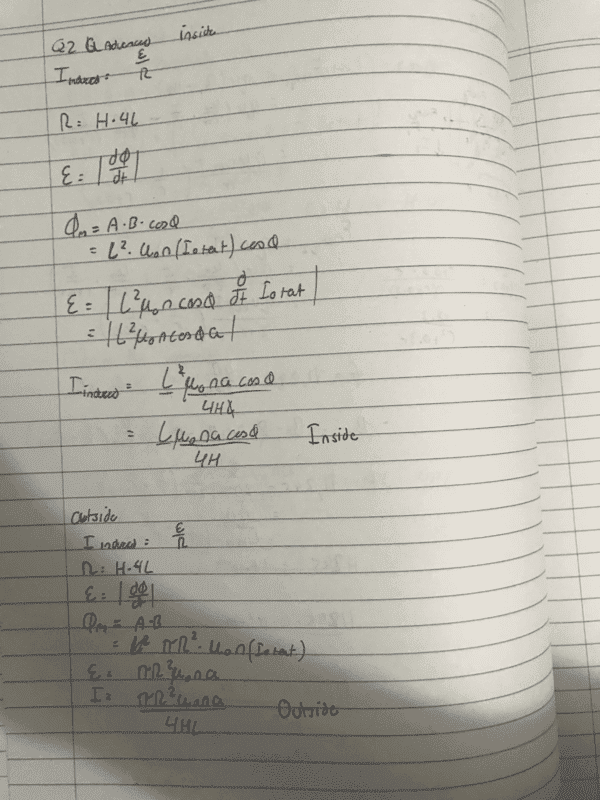 Q2 Advanced inside
I induced = ε/R
R = H·4L
ε = |dϕ/dt|
ϕm = A·B·cosθ
= L²·μ₀n(I₀+at)cosθ
ε = |L²μ₀ncosθ d/dt I₀+at|
= |L²μ₀ncosθa|
I induced = L²μ₀nacosθ/4HL
= Lμ₀nacosθ/4H Inside
Outside
I induced = ε/R
R = H·4L
ε = |dϕ/dt|
ϕm = A·B
= πR²·μ₀n(I₀+at)
ε = πR²μ₀na
I = πR²μ₀na/4HL Outside